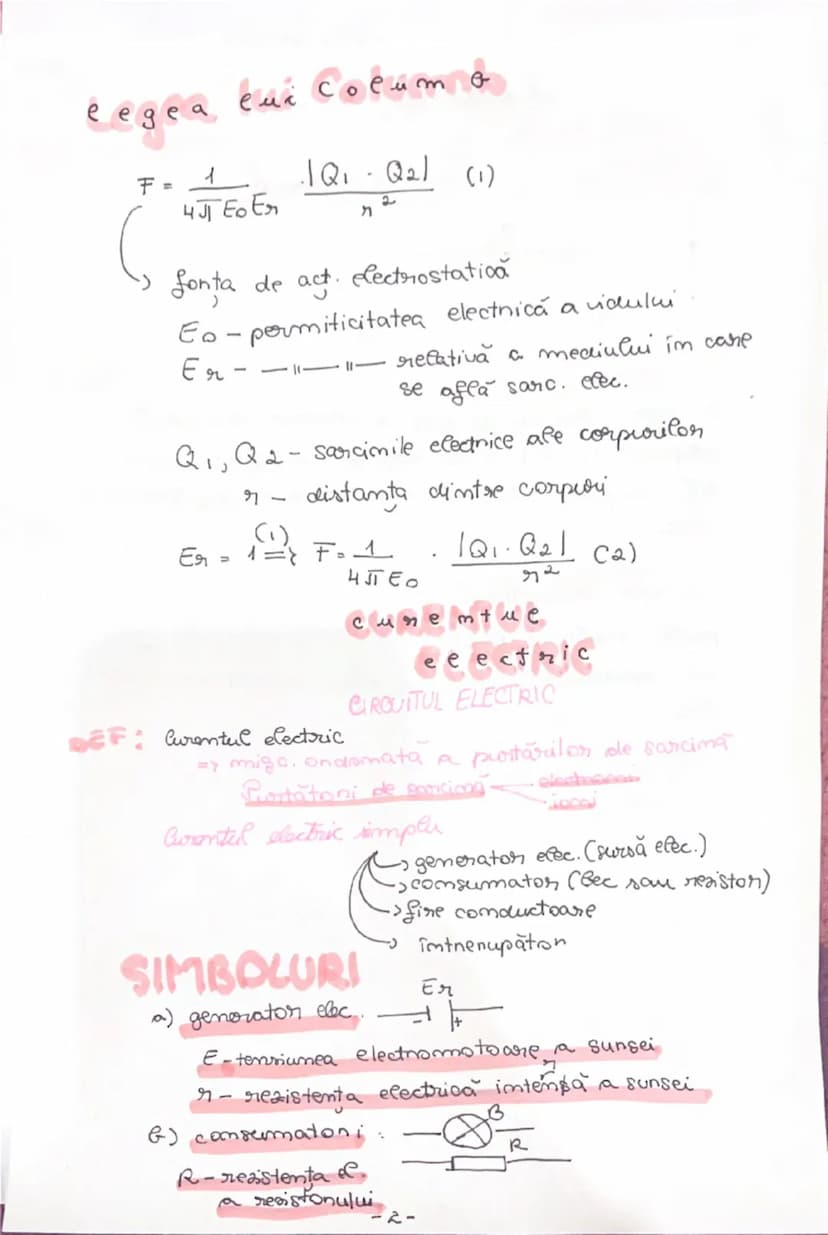 Legea lui Columb
F = 1/(4π E0 Er) · |Q1 · Q2|/r² (1)
forța de acț. electrostatică
E0 – permiticitatea electrică a vidului
Er – —||—||— relativă a mediului în care
se află sarc. elec.
Q1, Q2 – sarcinile electrice ale corpurilor
r – distanța dintre corpuri
Er = 1 =(1)=> F = 1/(4π E0) · |Q1 · Q2|/r² (2)
CURENTUL
ELECTRIC
CIRCUITUL ELECTRIC
DEF: Curentul electric
=> mișc. ordonată a purtărilor de sarcină
Purtătari de sarcină electroni
ioni
Curentul electric simplu
→ generator elec. (sursă elec.)
→ consumator (bec sau rezistor)
→ fire conductoare
→ întrerupător
SIMBOLURI
a) generator elec. E r - +
E – tensiunea electromotoare a sursei
r – rezistența electrică internă a sursei
b) consumatori: B
R
R – rezistența el.
a rezistorului
- 2 -